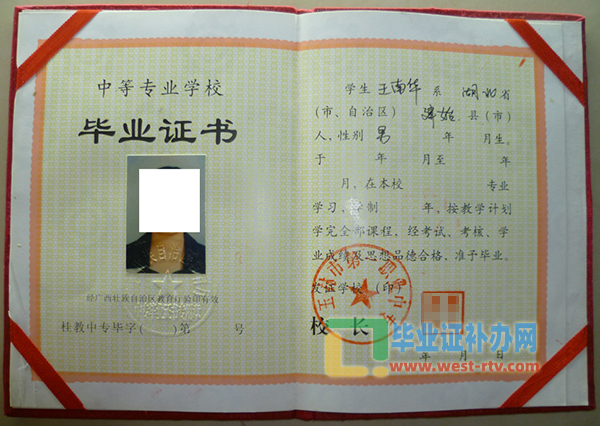 中等专业学校
毕业证书
经广西壮族自治区教育厅验印有效
桂教中专毕字( )第 号
学生 王南华 系 湖北 省
(市、自治区) 建始 县(市)
人,性别 男 年 月生。
于 年 月至 年
月,在本校 专业
学习,学制 年,按教学计划
学完全部课程,经考试、考核,学
业成绩及思想品德合格,准予毕业。
发证学校(印)
校 长
年 月 日
毕业证补办网
www.west-rtv.com